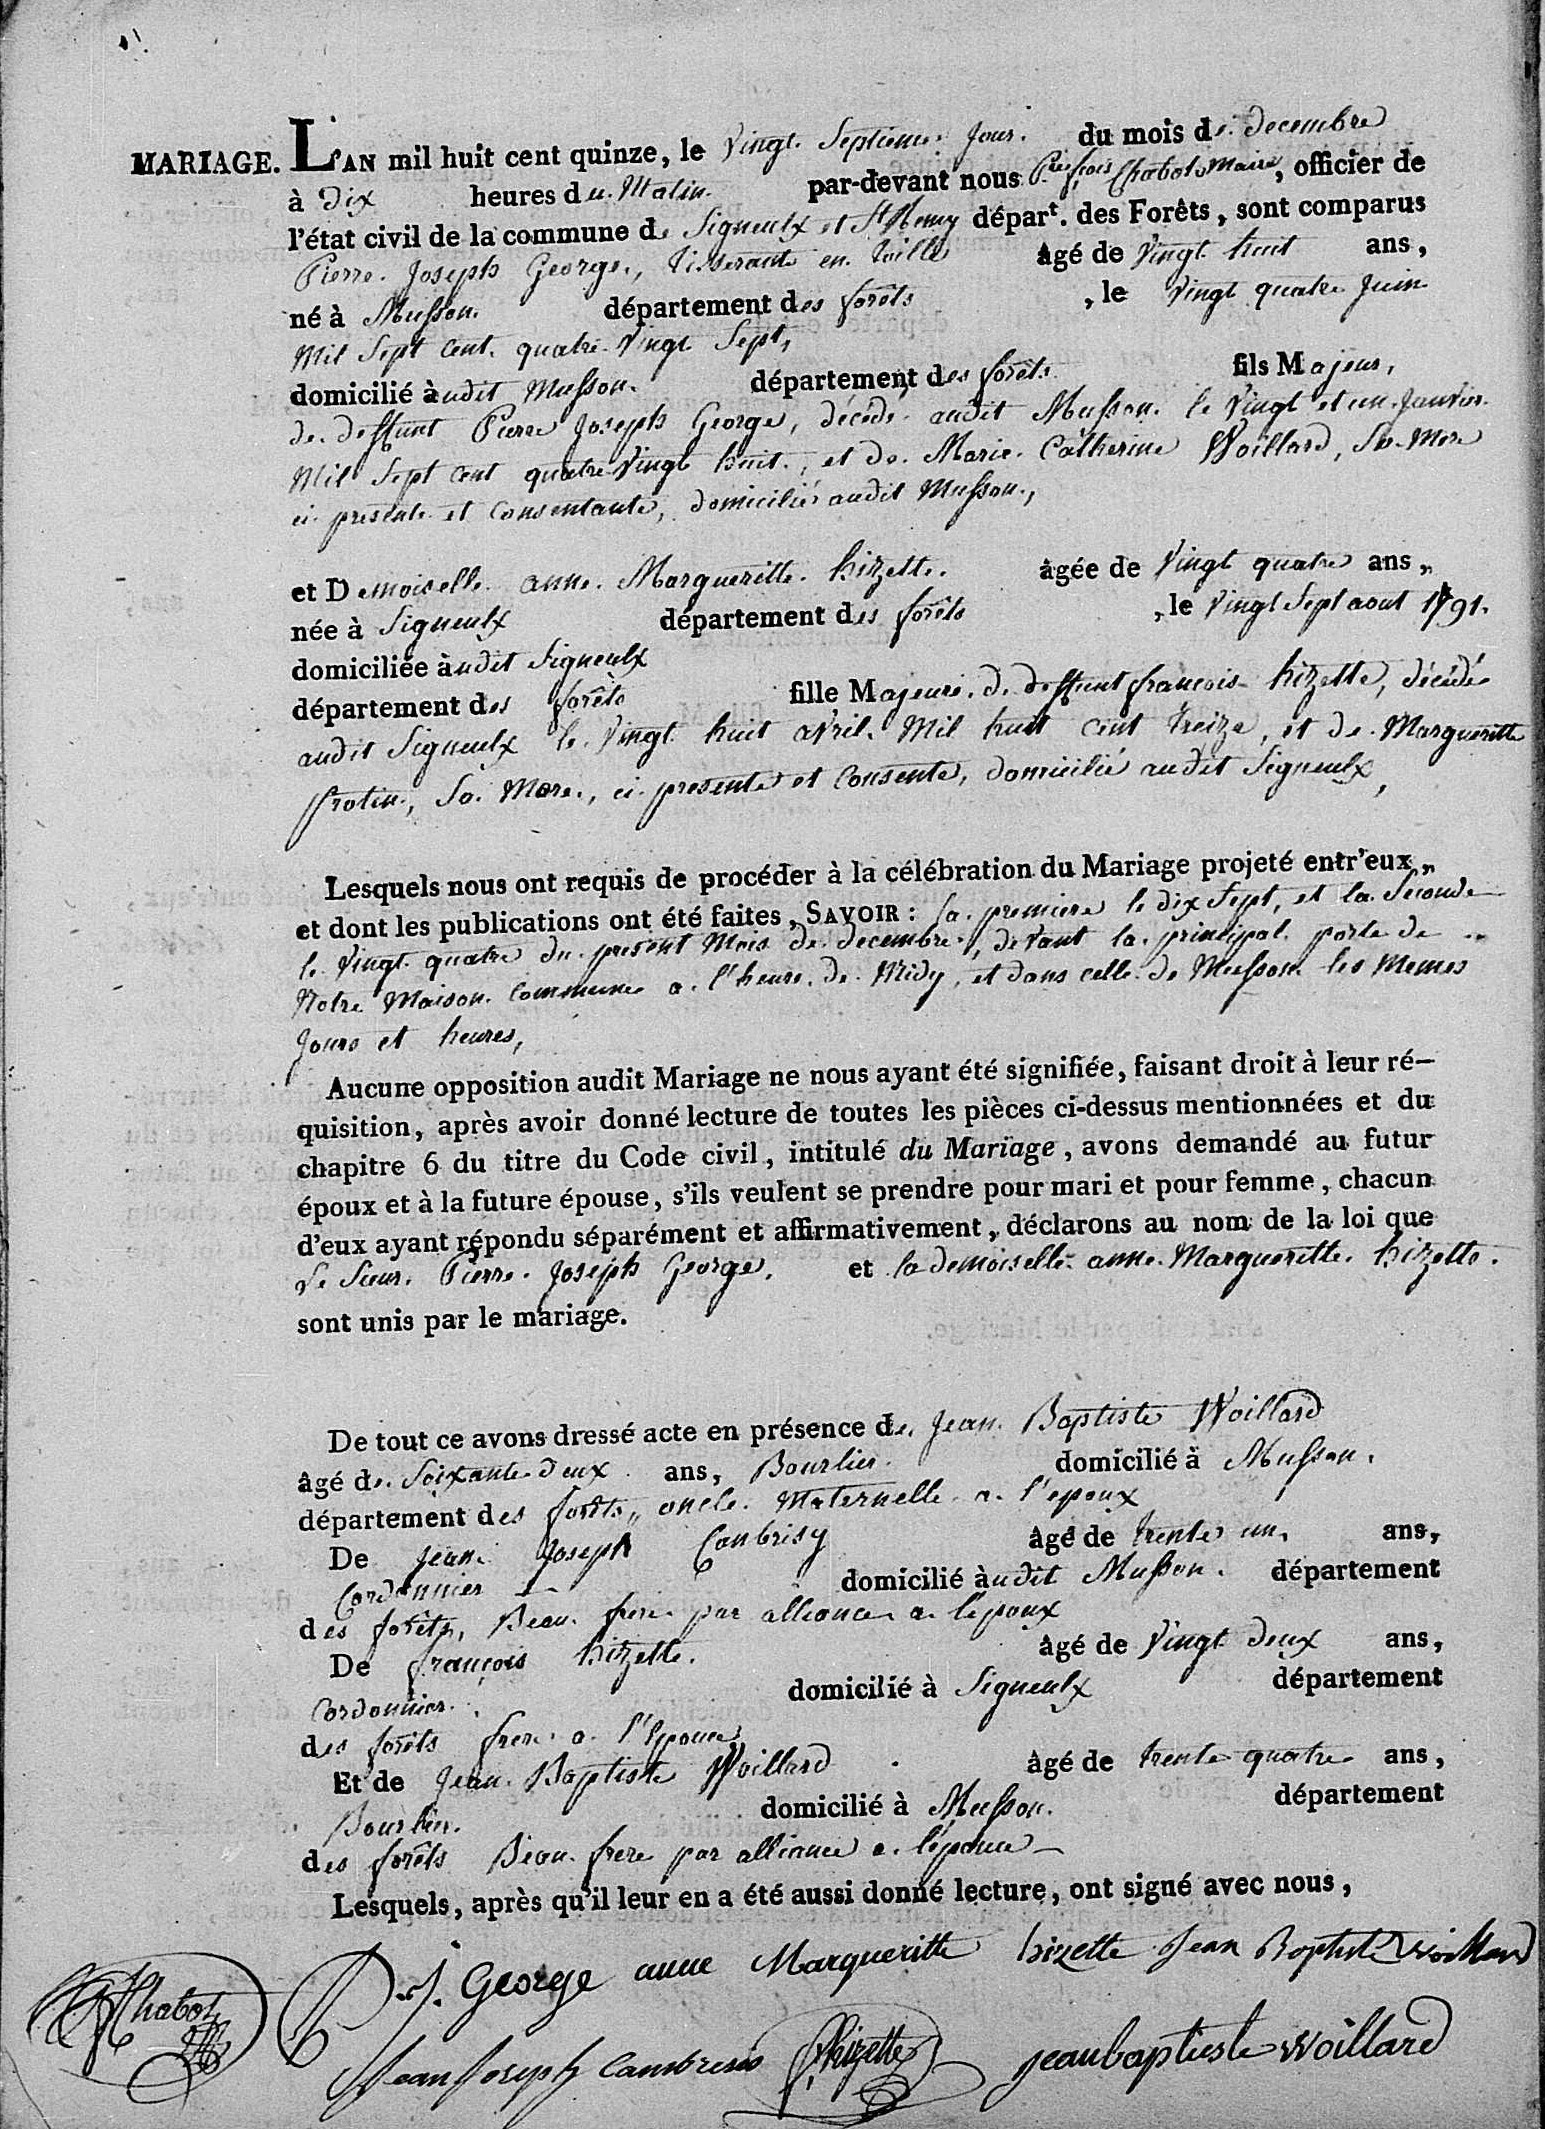 MARIAGE. L'AN mil huit cent quinze, le Vingt Septieme Jour du mois de decembre
à Dix heures du Matin par-devant nous Chabot Maire, officier de
l'état civil de la commune de Signeulx et St Remy départ. des Forêts, sont comparus
Pierre Joseph George, tisserant en toille âgé de Vingt huit ans,
né à Musson département des forêts, le Vingt quatre Juin
Mil Sept Cent quatre Vingt Sept,
domicilié audit Musson département des forêts fils Majeur,
de deffunt Pierre Joseph George, décédé audit Musson le Vingt et un Janvier
Mil Sept Cent quatre Vingt huit, et de Marie Catherine Woillard, Sa Mere
ci presente et Consentante, domicilié audit Musson,
et Demoiselle anne Margueritte hizette âgée de Vingt quatre ans,,
née à Signeulx département des forêts, le Vingt Sept aout 1791.
domiciliée audit Signeulx
département des forêts fille Majeure de deffunt françois hizette, décédé
audit Signeulx le Vingt huit avril Mil huit Cent treize, et de Margueritte
frotin, Sa Mere, ci presente et Consente, domicilié audit Signeulx,
Lesquels nous ont requis de procéder à la célébration du Mariage projeté entr'eux,,
et dont les publications ont été faites, SAVOIR: la premiere le dix Sept, et la Seconde
le Vingt quatre du present Mois de decembre, devant la principal porte de
Notre Maison Commune a l'heure de Midy, et dans celle de Musson les Memes
Jours et heures,
Aucune opposition audit Mariage ne nous ayant été signifiée, faisant droit à leur ré-
quisition, après avoir donné lecture de toutes les pièces ci-dessus mentionnées et du
chapitre 6 du titre du Code civil, intitulé du Mariage, avons demandé au futur
époux et à la future épouse, s'ils veulent se prendre pour mari et pour femme, chacun
d'eux ayant répondu séparément et affirmativement, déclarons au nom de la loi que
Le Sieur Pierre Joseph George, et la demoiselle anne Margueritte hizette.
sont unis par le mariage.
De tout ce avons dressé acte en présence de Jean Baptiste Woillard
âgé de Soixante deux ans, Bourlier domicilié à Musson.
département des forêts,, oncle Maternelle a l'epoux
De Jean Joseph Canbrisy âgé de trente un ans,
Cordonnier domicilié audit Musson. département
des forêts, Beau frere par alliance a l'epoux
De françois hizette. âgé de Vingt deux ans,
Cordonnier. domicilié à Signeulx département
des forêts frere a l'Epouce
Et de Jean Baptiste Woillard âgé de trente quatre ans,
Bourlier. domicilié à Musson. département
des forêts Beau frere par alliance a l'épouce
Lesquels, après qu'il leur en a été aussi donné lecture, ont signé avec nous,
P. J. George anne Margueritte hizette Jean Baptiste Woillard
Chabot
Jean Joseph hizette jean baptiste Woillard